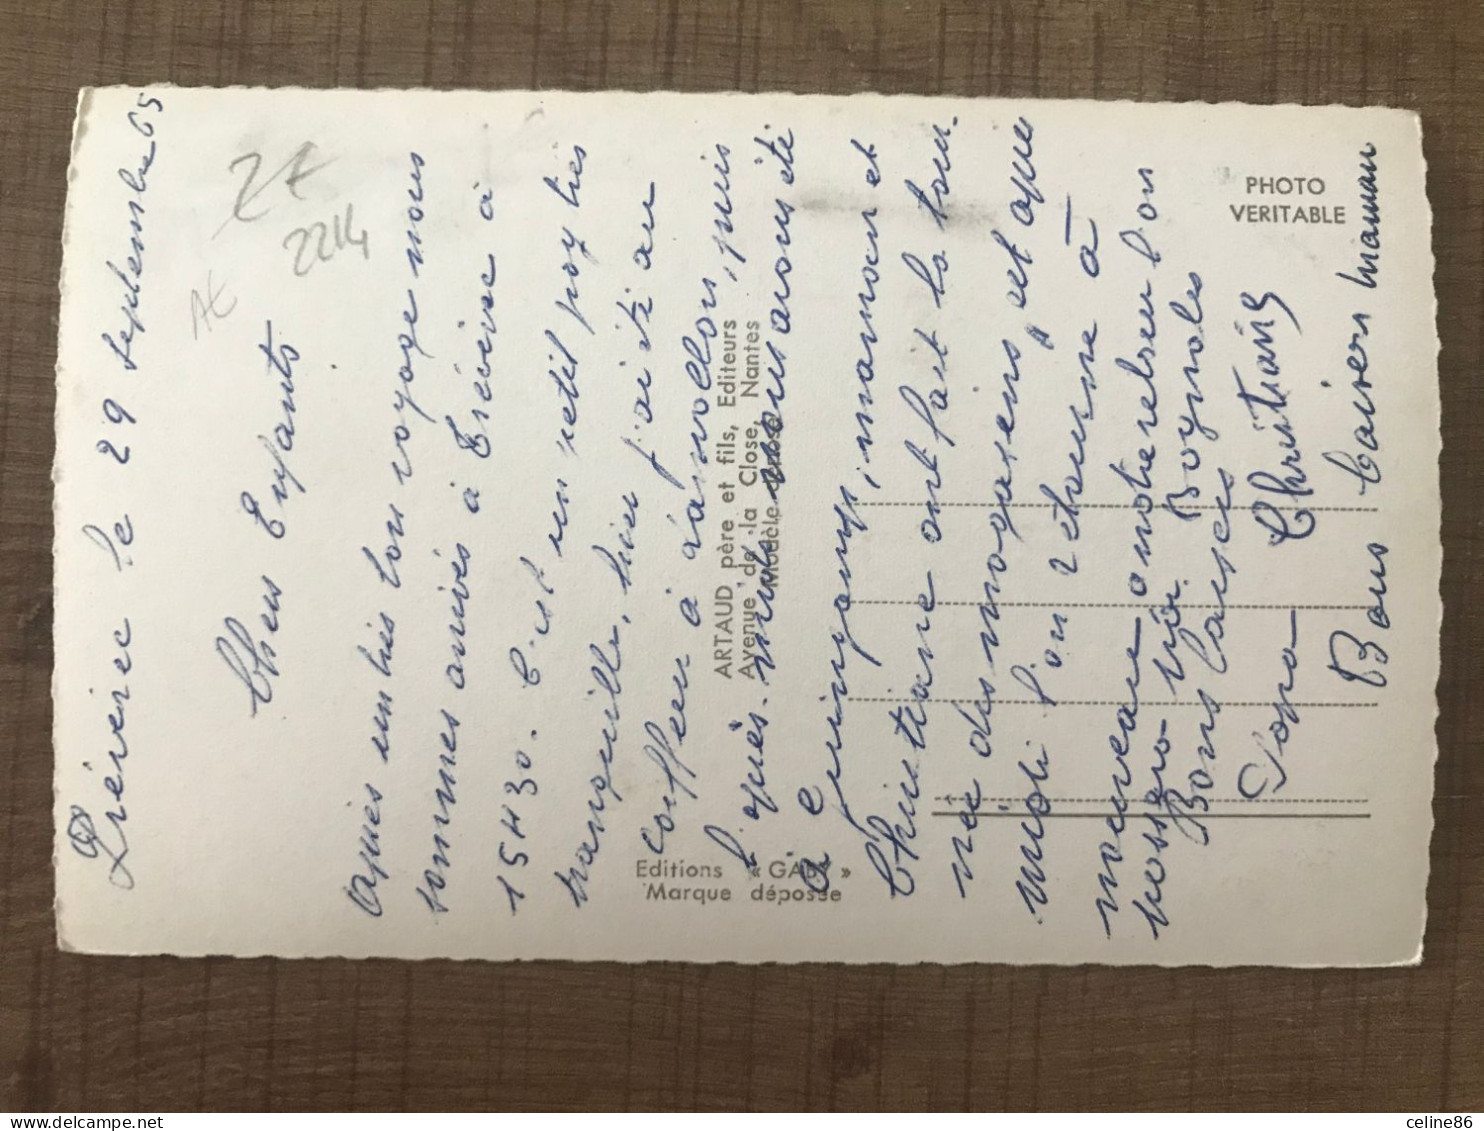 Prévire le 29 septembre 65
Chers Enfants
après un très bon voyage nous
sommes arrivés à à
15 H 30. C'est un petit pays très
tranquille, hier j'ai été au
coiffeur à Lamballe, puis
l'après-midi nous avons été
à
à Guingamp, maman et
Christiane ont fait la tour-
née des magasins, et après
midi l'on retourne à
nouveau à notre retour l'on
Bagnoles
Bons baisers
Papa Christiane
Bons baisers maman
2€
2214
AE
ARTAUD père et fils, Editeurs
Avenue de la Close, Nantes
Modèle déposé
Editions « GABY »
Marque déposée
PHOTO
VERITABLE
www.delcampe.net
celine86